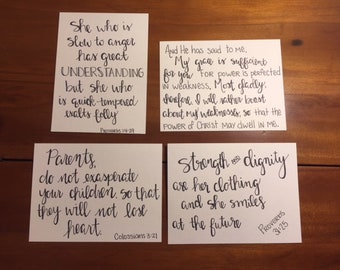 She who is
slow to anger
has great
UNDERSTANDING
but she who
is quick-tempered
exalts folly
Proverbs 14:29
And He has said to me,
My grace is sufficient
for you for power is perfected
in weakness. Most gladly,
therefore, I will rather boast
about my weaknesses, so that the
power of Christ may dwell in me.
Parents,
do not exasperate
your children, so that
they will not lose
heart.
Colossians 3:21
Strength and dignity
are her clothing
and she smiles
at the future
Proverbs
31:25